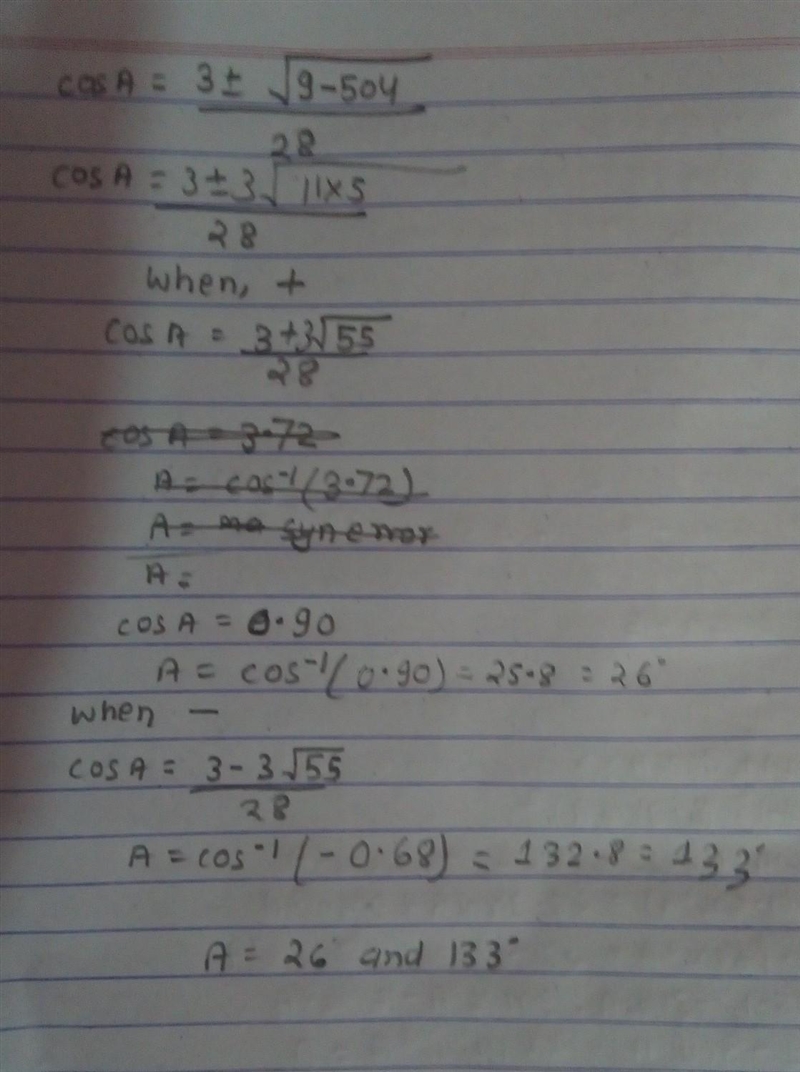 cos A = 3 ± √9-504 / 28
cos A = 3 ± 3√11×5 / 28
when, +
cos A = 3+3√55 / 28
cos A = 3.72
A = cos⁻¹(3.72)
A = syn error
A =
cos A = 0.90
A = cos⁻¹(0.90) = 25.8 = 26°
when -
cos A = 3-3√55 / 28
A = cos⁻¹(-0.68) = 132.8 = 133°
A = 26° and 133°